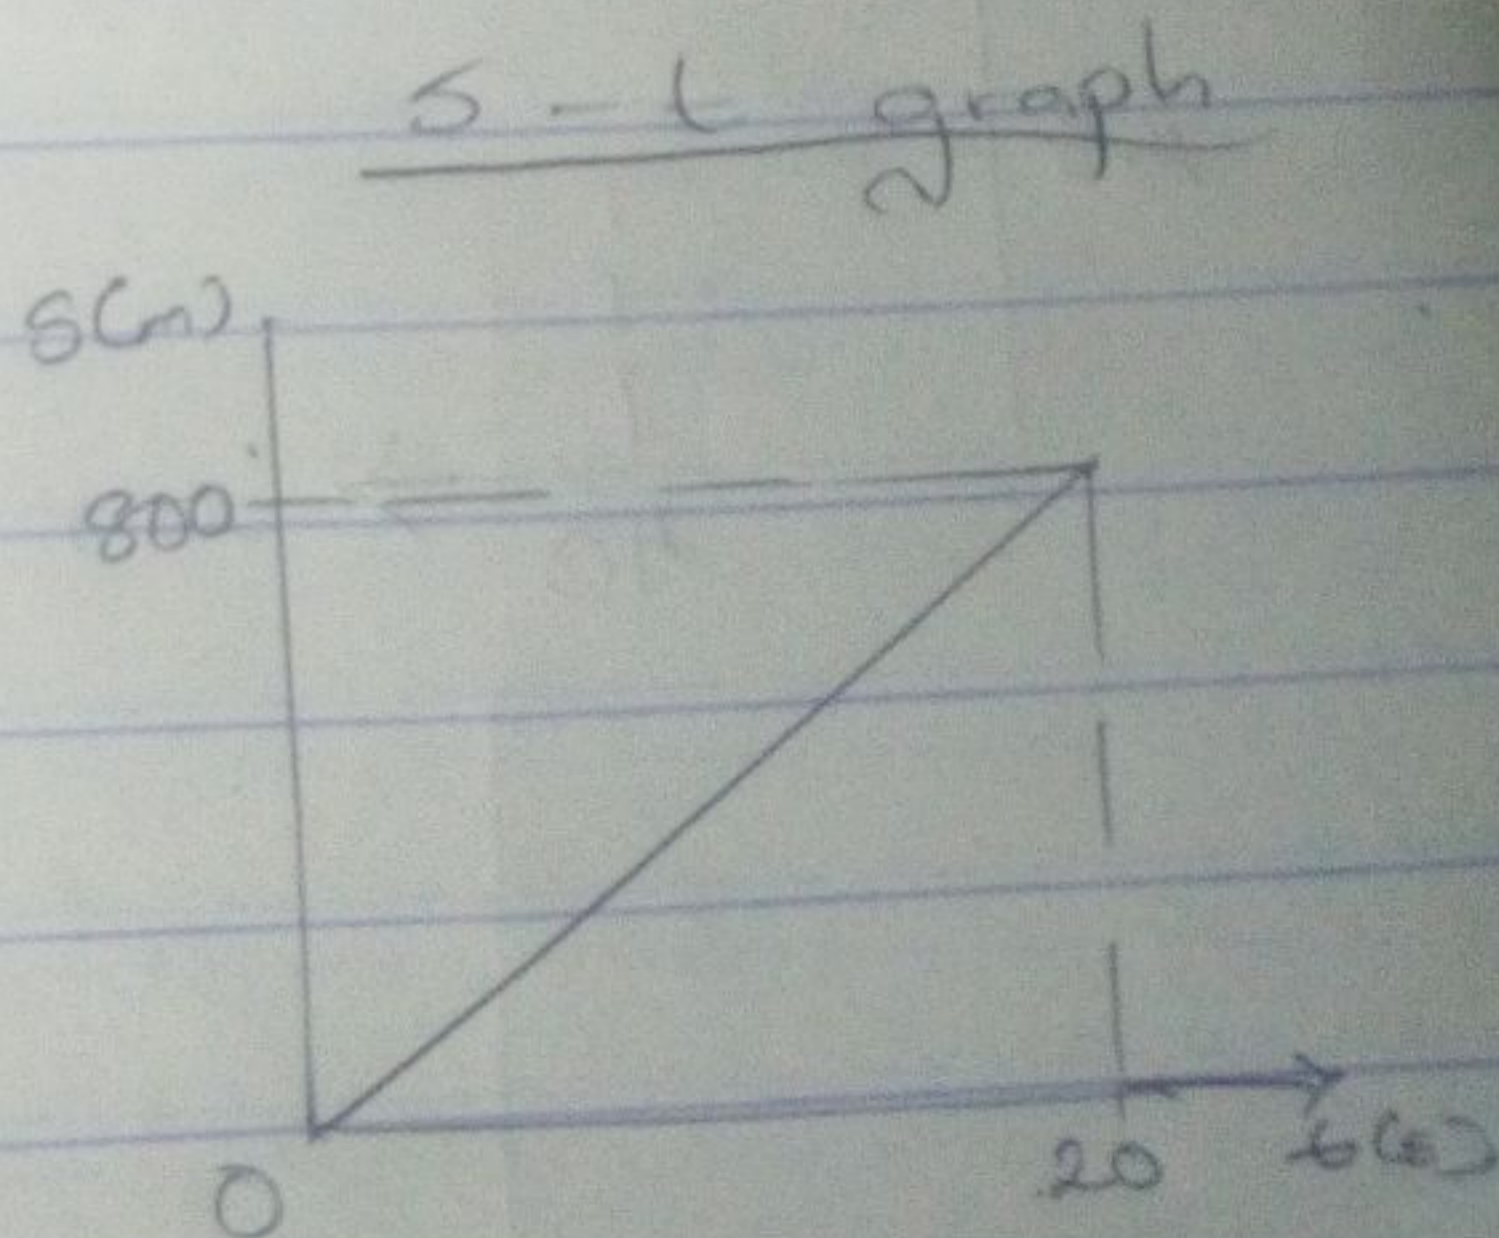 s - t graph
S(m)
800
0
20
t(s)